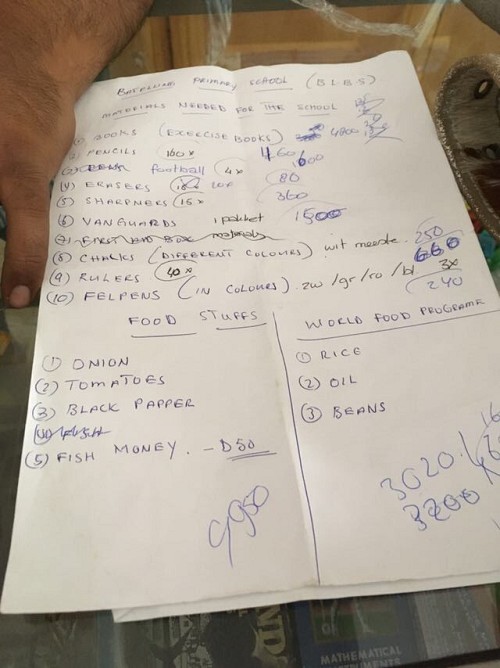 BAKELINE PRIMARY SCHOOL (B.L.B.S)
MATERIALS NEEDED FOR THE SCHOOL
BOOKS (EXERCISE BOOKS) 4800
PENCILS 100x
football 4x 1000
(4) ERASERS 20x 80
5) SHARPNERS 15x 360
6) VANGUARDS 1 pakket 1500
(7) FIRST AID BOX materials
(8) CHALKS (DIFFERENT COLOURS) wit meerde. 250
(9) RULERS 40x 660
(10) FELPENS (IN COLOURS). zw/gr/ro/bl 3x 240
FOOD STUFFS
① ONION
(2) TOMATOES
(3) BLACK PAPPER
(5) FISH MONEY. - D50
4950
WORLD FOOD PROGRAME
① RICE
(2) OIL
③ BEANS
3020
3200
MATHEMATICAL